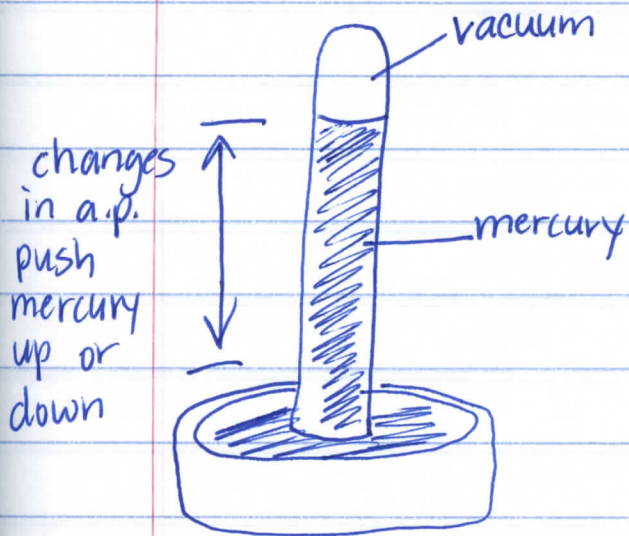 vacuum
changes
in a.p.
push
mercury
up or
down
mercury